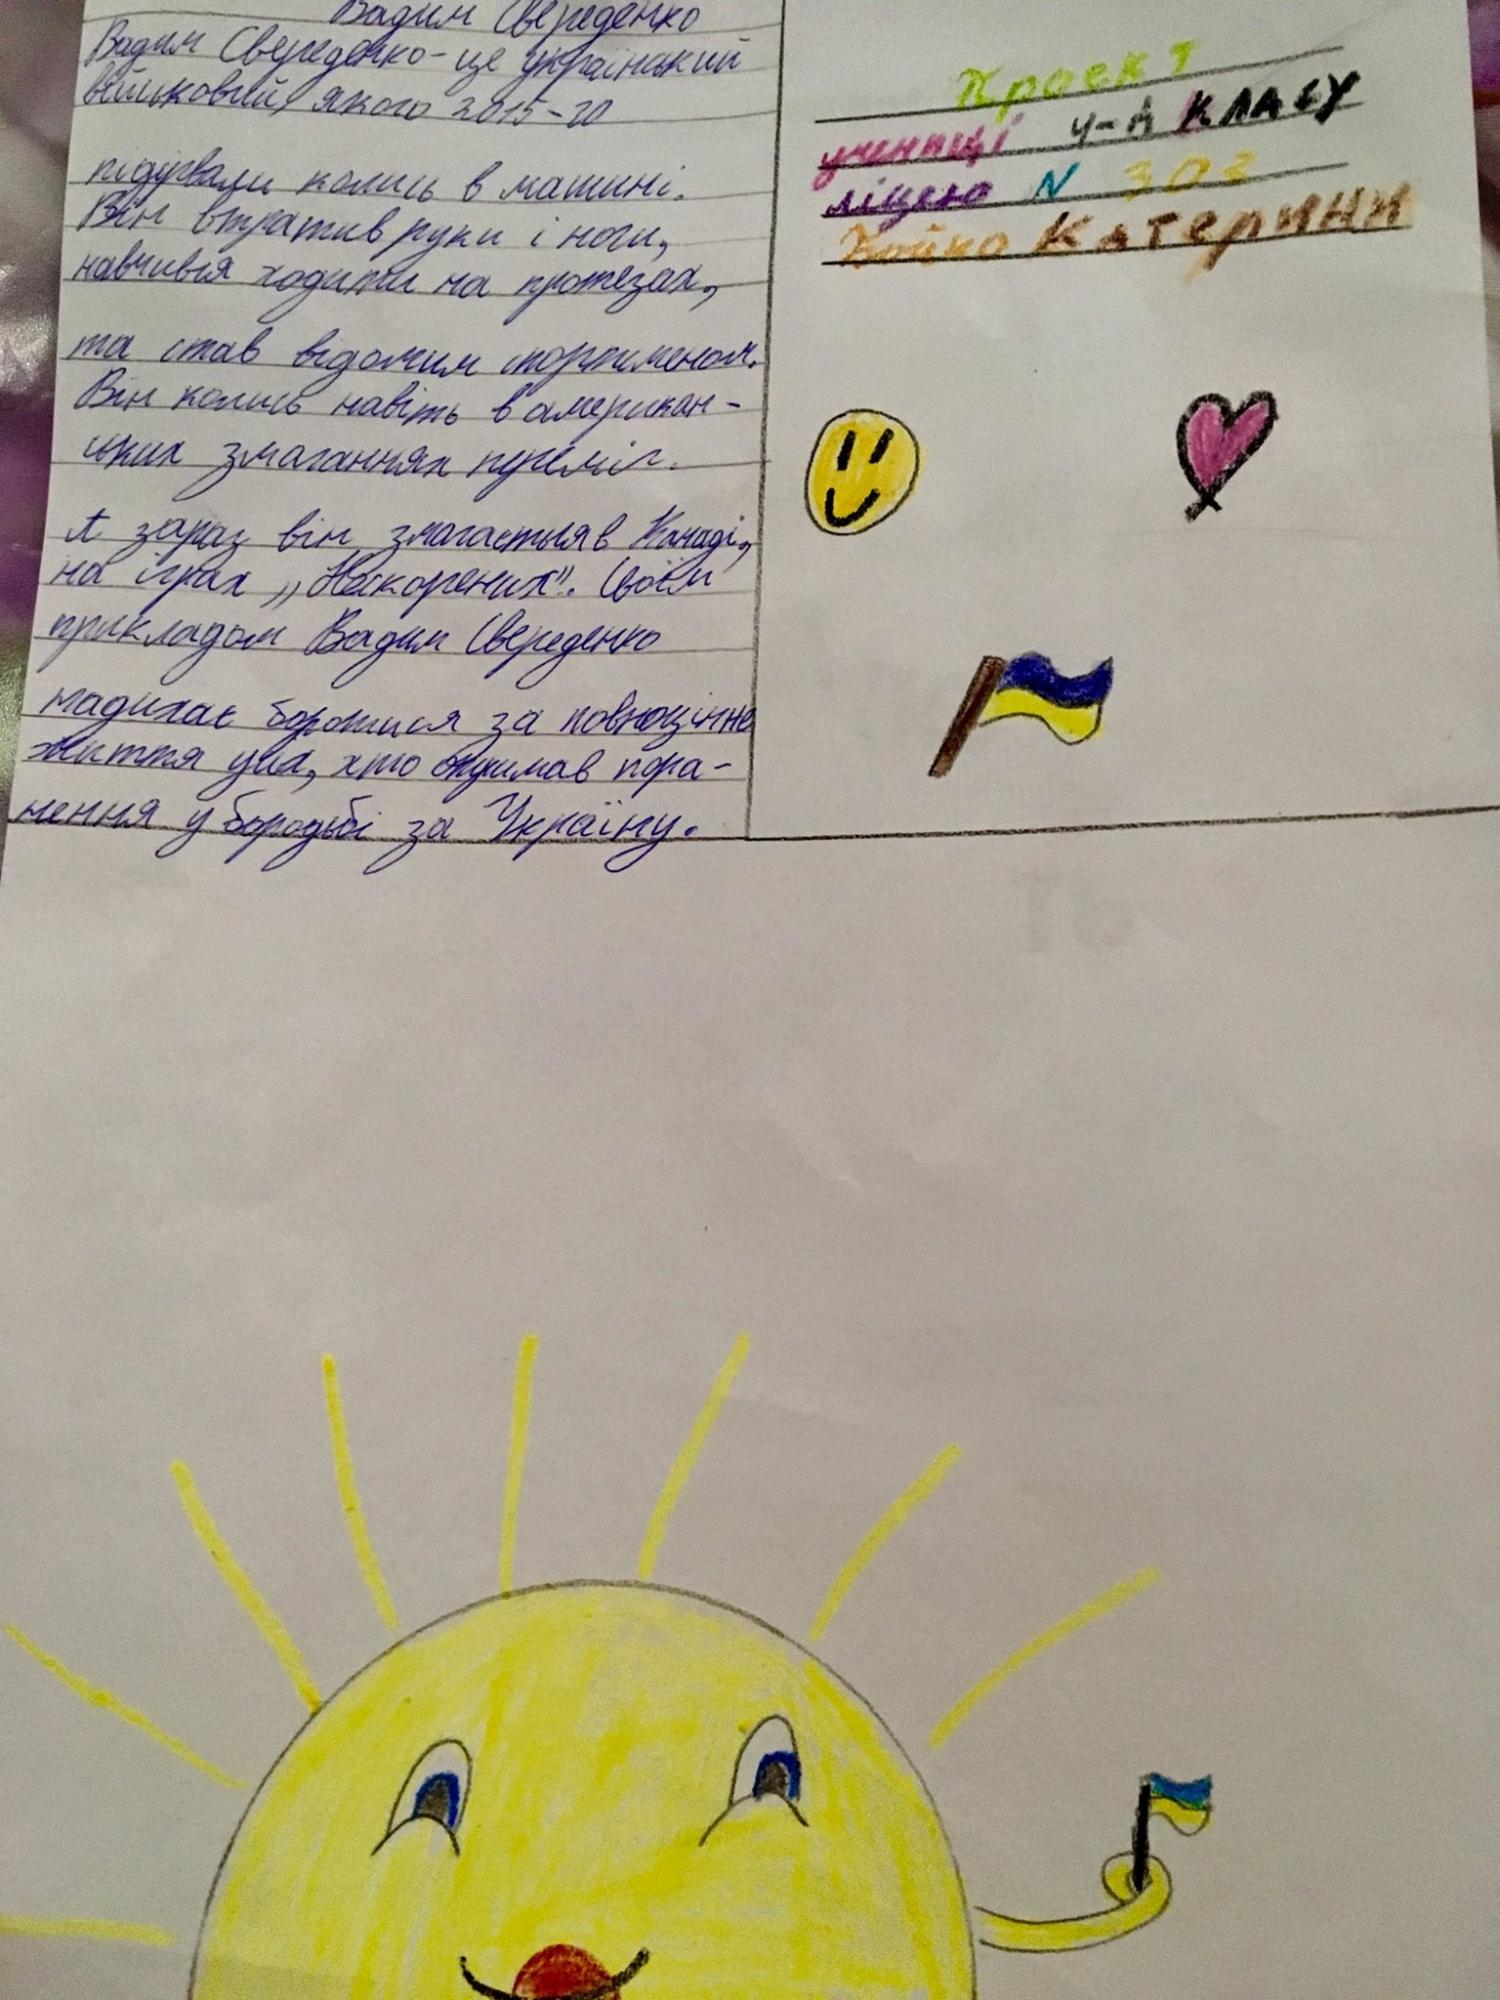 Вадим Свереденко
Вадим Свереденко - це український
військовий, якого 2015-го
підірвали колись в машині.
Він втратив руки і ноги,
навчився ходити на протезах,
та став відомим спортсменом.
Він колись навіть в американ-
ських змаганнях переміг.
А зараз він змагається в Канаді,
на іграх „Нескорених". Своїм
прикладом Вадим Свереденко
надихає боротися за повноцінне
життя усіх, хто отримав пора-
нення у бородьбі за Україну.
Проєкт
учениці 4-А класу
ліцею N 303
Бойко Катерини